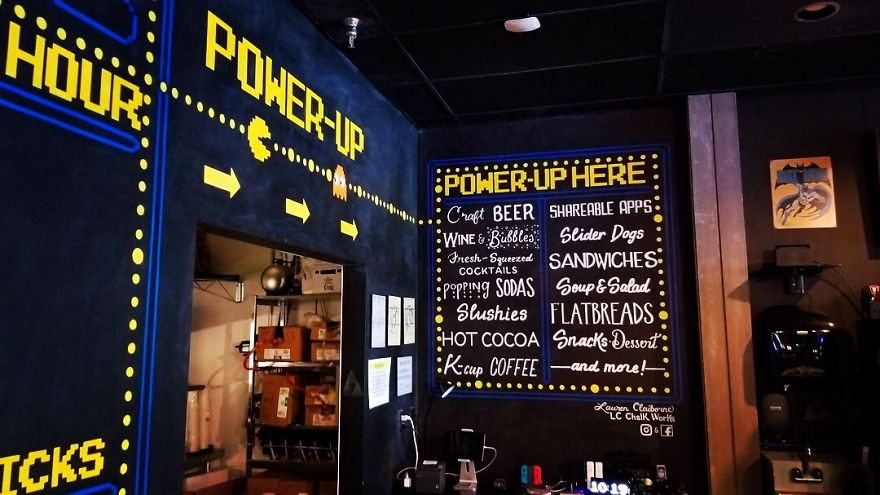 HOUR
POWER-UP
ICKS
POWER-UP HERE
Craft BEER
WINE & Bubbles
Fresh-Squeezed
COCKTAILS
popping SODAS
Slushies
HOT COCOA
K-cup COFFEE
SHAREABLE APPS
Slider Dogs
SANDWICHES
Soup & Salad
FLATBREADS
Snacks·Dessert
—and more!—
Lauren Claiborne
LC Chalk Works
&
10:19